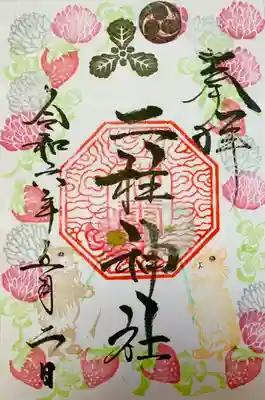 奉拝
三柱神社
令和六年五月二日